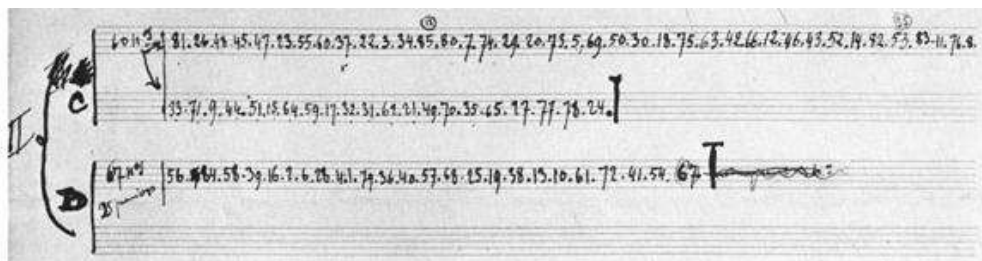 81.26.48.45.47.23.55.60.37.22.3.34.85.80.7.74.29.20.73.5.69.50.30.18.75.63.42.66.12.46.43.52.14.82.53.83.11.76.8.
II.
C
33.71.9.44.51.15.64.59.17.32.31.62.21.49.70.35.65.27.77.78.24.
67 nos 56. 84.58.39.16.2.6.28.4.1.79.36.40.57.68.25.19.38.13.10.61.72.41.54. 67
D